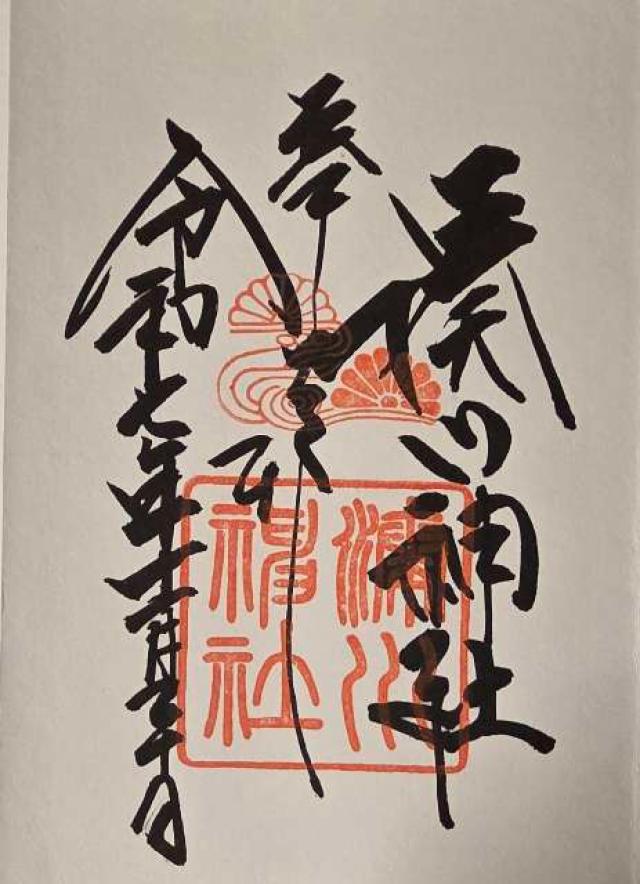 湊川神社
奉拝
令和七年十二月三十日
湊川
神社